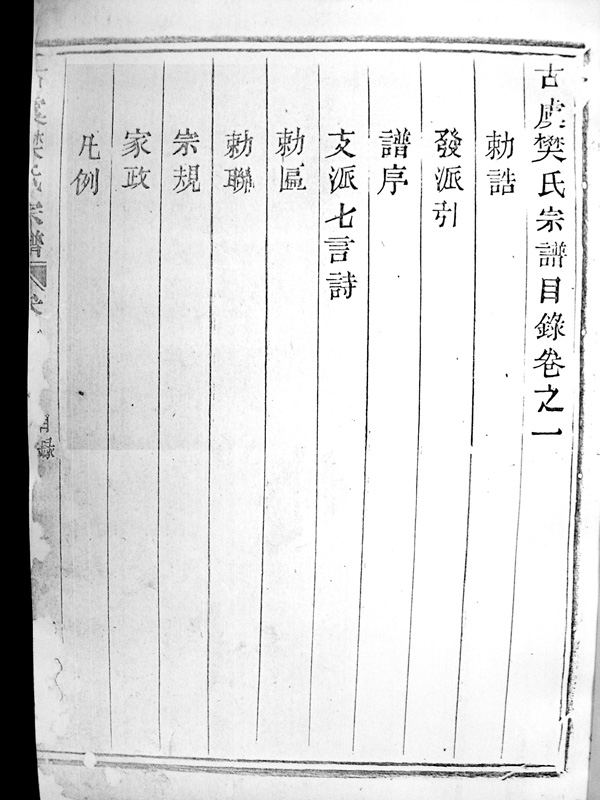 古虞樊氏宗譜目錄卷之一
勅誥
發派引
譜序
支派七言詩
勅匾
勅聯
宗規
家政
凡例
古虞樊氏宗譜
目錄